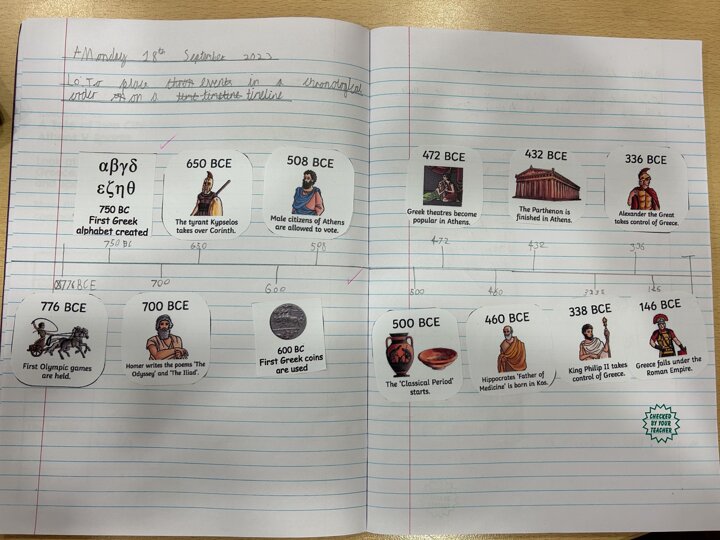 Monday 18th September 2023
LO: To place events in a chronological
order on a timeline
αβγδ
εζηθ
750 BC
First Greek
alphabet created
650 BCE
The tyrant Kypselos
takes over Corinth.
508 BCE
Male citizens of Athens
are allowed to vote.
750 BC
650
508
776 BCE
700
600
776 BCE
First Olympic games
are held.
700 BCE
Homer writes the poems 'The
Odyssey' and 'The Iliad'.
600 BC
First Greek coins
are used
472 BCE
Greek theatres become
popular in Athens.
432 BCE
The Parthenon is
finished in Athens.
336 BCE
Alexander the Great
takes control of Greece.
472
432
336
500
460
146
500 BCE
The 'Classical Period'
starts.
460 BCE
Hippocrates 'Father of
Medicine' is born in Kos.
338 BCE
King Philip II takes
control of Greece.
146 BCE
Greece falls under the
Roman Empire.
CHECKED
BY YOUR
TEACHER